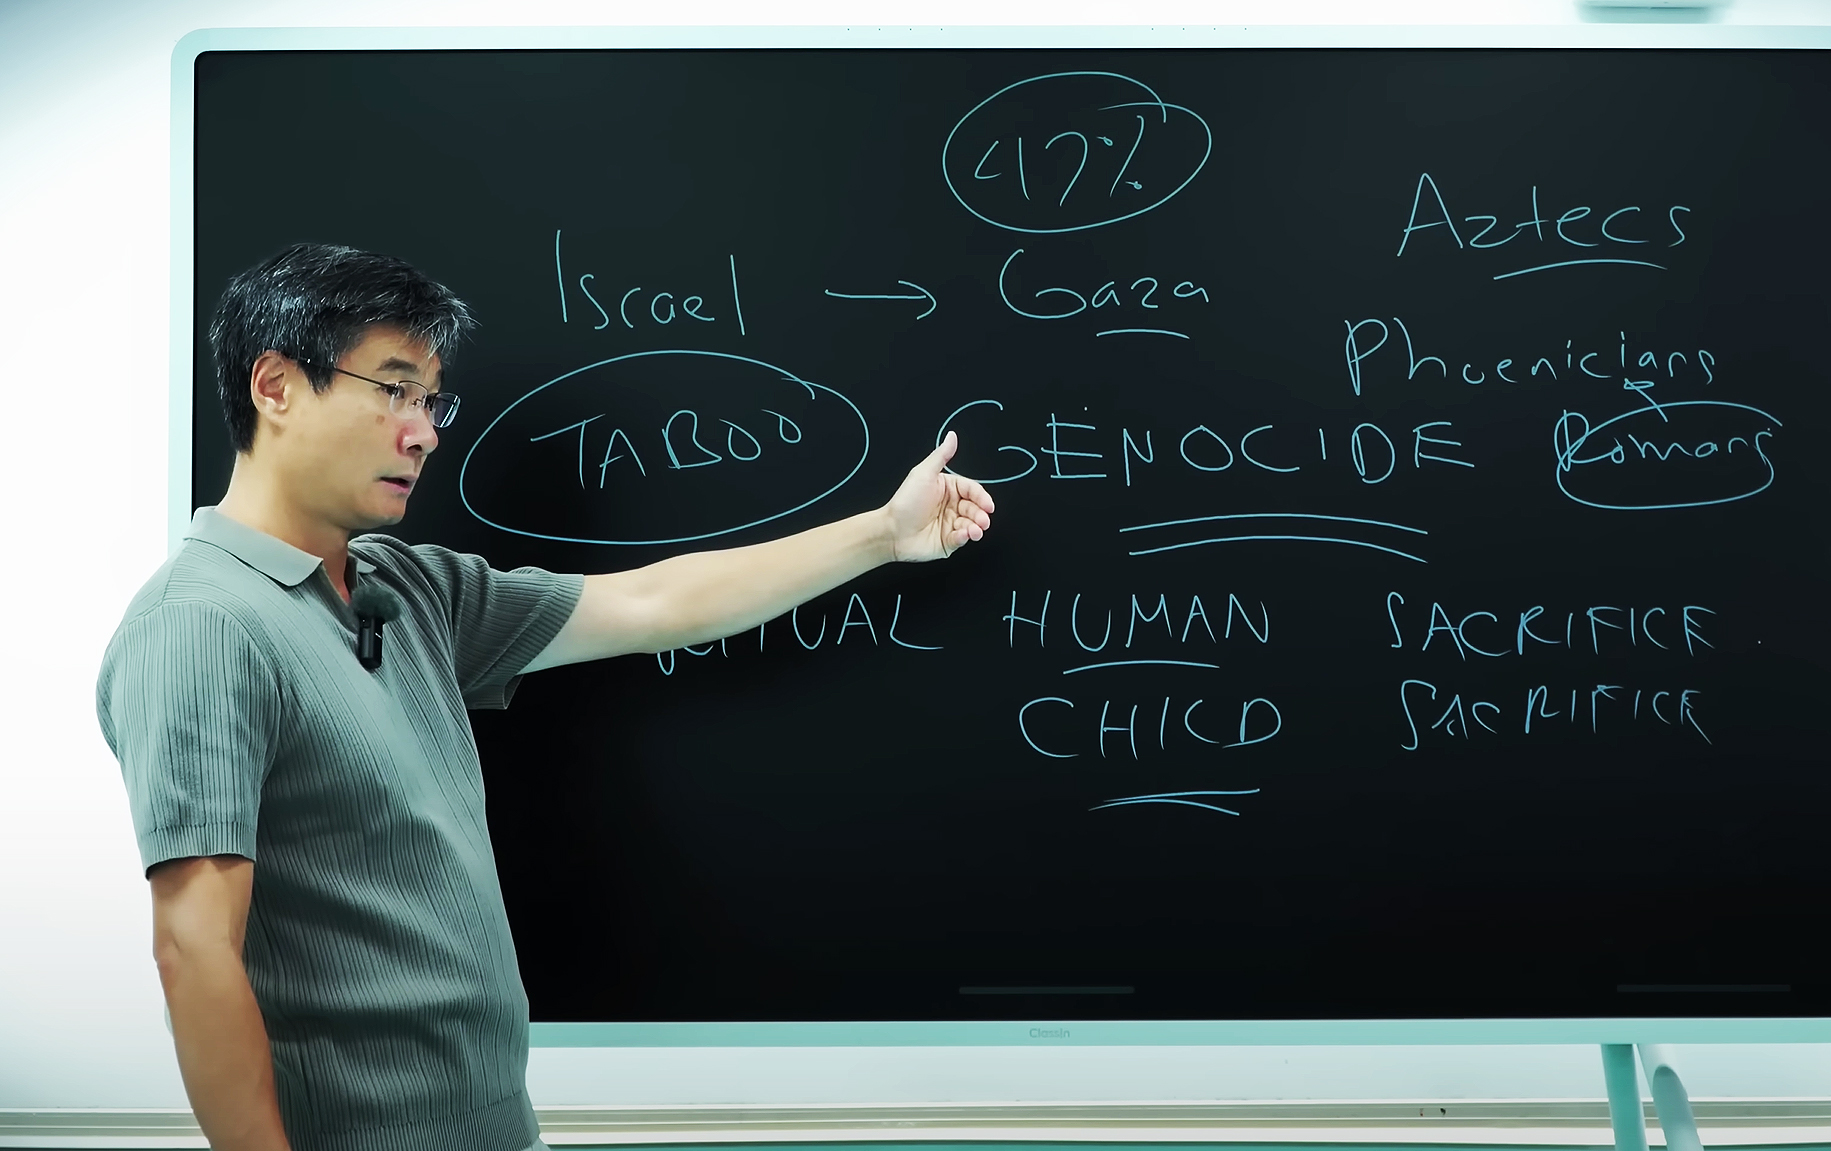 47%
Aztecs
Israel → Gaza
Phoenicians
TABOO GENOCIDE Romans
RITUAL HUMAN SACRIFICE
CHILD SACRIFICE
ClassIn